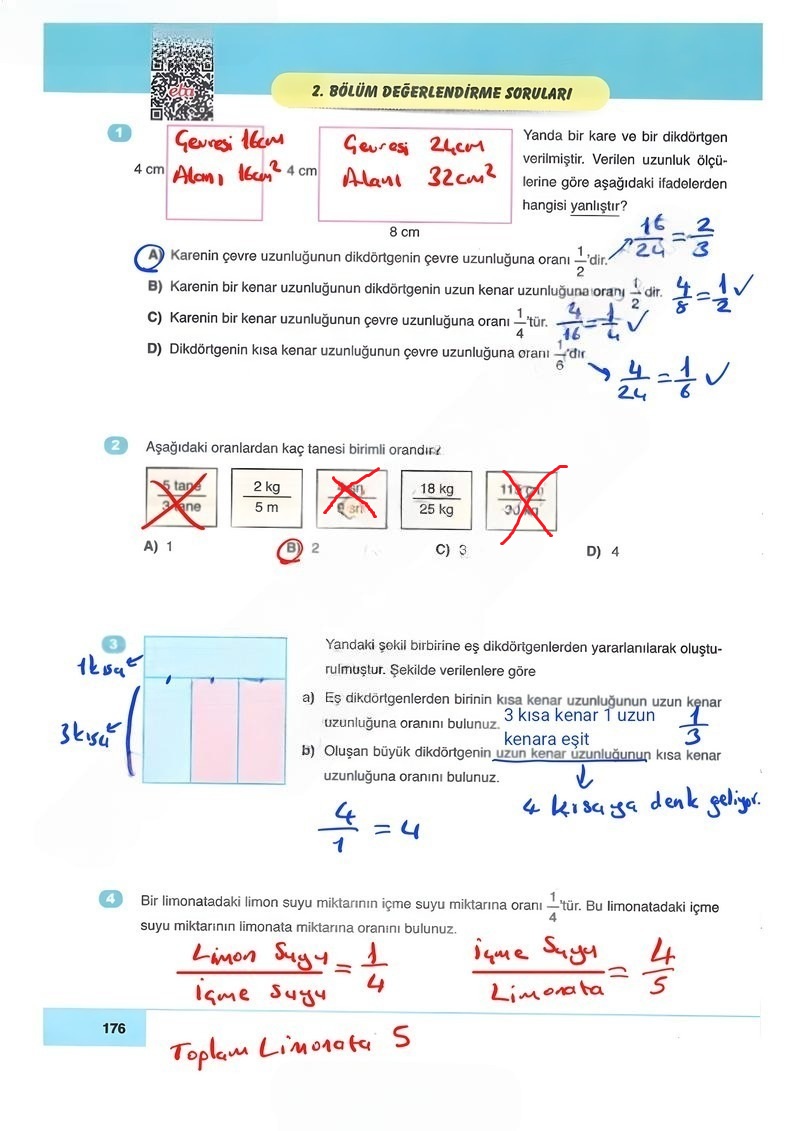 eba
2. BÖLÜM DEĞERLENDİRME SORULARI
1
Çevresi 16cm
Alanı 16cm²
4 cm
Çevresi 24cm
Alanı 32cm²
4 cm
8 cm
Yanda bir kare ve bir dikdörtgen
verilmiştir. Verilen uzunluk ölçü-
lerine göre aşağıdaki ifadelerden
hangisi yanlıştır?
A) Karenin çevre uzunluğunun dikdörtgenin çevre uzunluğuna oranı 1/2'dir. 16/24 = 2/3
B) Karenin bir kenar uzunluğunun dikdörtgenin uzun kenar uzunluğuna oranı 1/2 dir. 4/8 = 1/2 ✓
C) Karenin bir kenar uzunluğunun çevre uzunluğuna oranı 1/4'tür. 4/16 = 1/4 ✓
D) Dikdörtgenin kısa kenar uzunluğunun çevre uzunluğuna oranı 1/6'dır
4/24 = 1/6 ✓
2
Aşağıdaki oranlardan kaç tanesi birimli orandır?
5 tane / 3 tane
2 kg / 5 m
sn / 9 sn
18 kg / 25 kg
115 / 30 kg
A) 1 B) 2 C) 3 D) 4
3
1 kısa
3 kısa
Yandaki şekil birbirine eş dikdörtgenlerden yararlanılarak oluştu-
rulmuştur. Şekilde verilenlere göre
a) Eş dikdörtgenlerden birinin kısa kenar uzunluğunun uzun kenar
uzunluğuna oranını bulunuz. 3 kısa kenar 1 uzun
kenara eşit
1/3
b) Oluşan büyük dikdörtgenin uzun kenar uzunluğunun kısa kenar
uzunluğuna oranını bulunuz.
4 kısaya denk geliyor.
4/1 = 4
4
Bir limonatadaki limon suyu miktarının içme suyu miktarına oranı 1/4'tür. Bu limonatadaki içme
suyu miktarının limonata miktarına oranını bulunuz.
Limon Suyu / içme suyu = 1/4
içme Suyu / Limonata = 4/5
176
Toplam Limonata 5